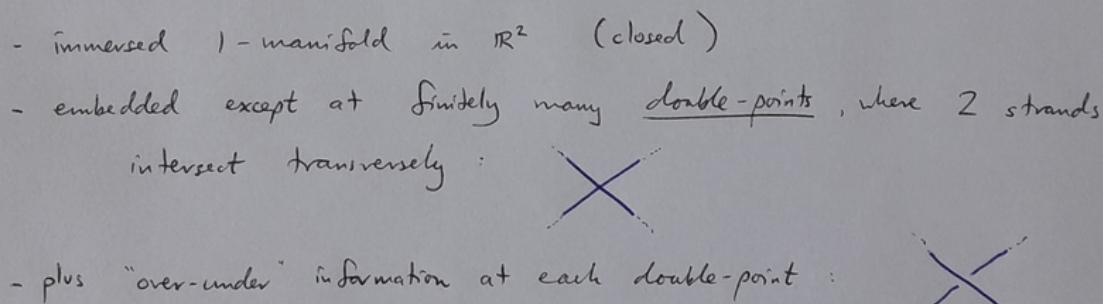 - immersed 1-manifold in ℝ² (closed)
- embedded except at finitely many double-points, where 2 strands
intersect transversely :
- plus "over-under" information at each double-point :